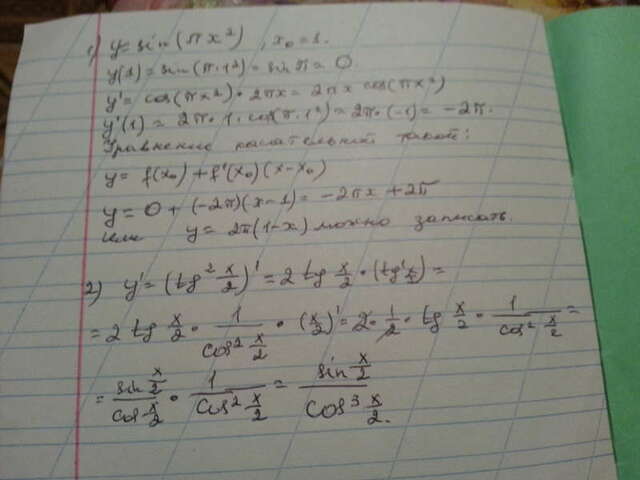 1) y = sin(πx²), x₀ = 1.
y(1) = sin(π·1²) = sin π = 0
y' = cos(πx²)·2πx = 2πx cos(πx²)
y'(1) = 2π·1·cos(π·1²) = 2π·(-1) = -2π.
Уравнение касательной такой:
y = f(x₀) + f'(x₀)(x-x₀)
y = 0 + (-2π)(x-1) = -2πx + 2π
или y = 2π(1-x) можно записать.
2) y' = (tg² x/2)' = 2 tg x/2 · (tg x/2)' =
= 2 tg x/2 · 1/cos² x/2 · (x/2)' = 2·1/2 · tg x/2 · 1/cos² x/2 =
= sin x/2 / cos x/2 · 1/cos² x/2 = sin x/2 / cos³ x/2.